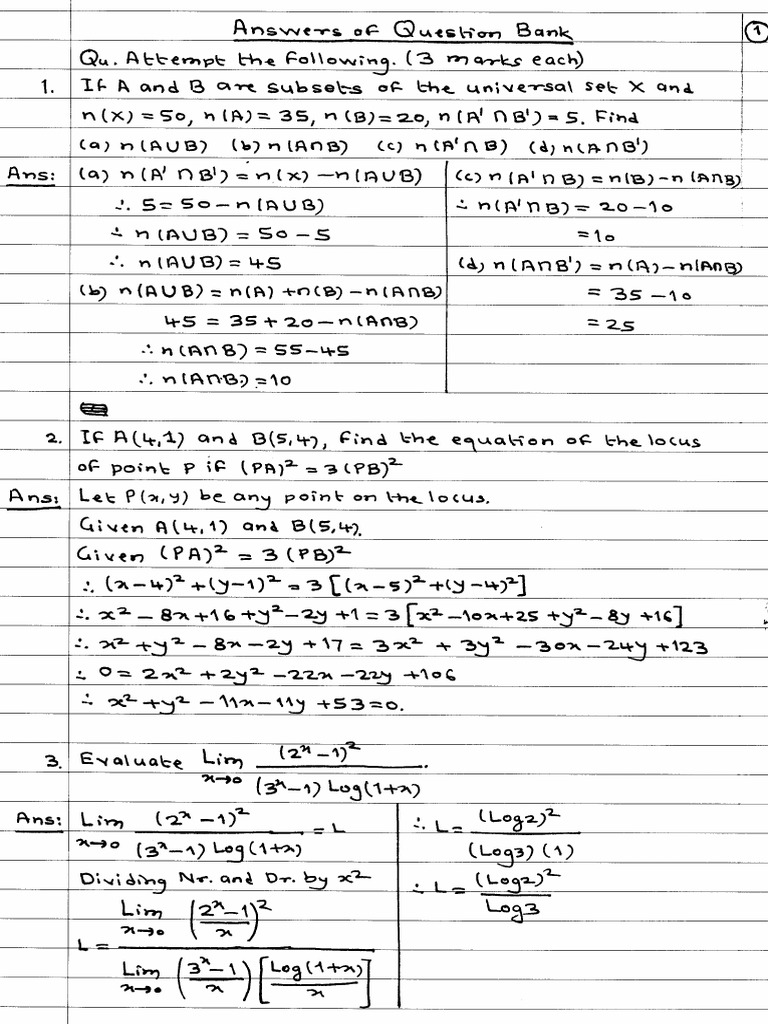 Answers of Question Bank
1
Qu. Attempt the following. (3 marks each)
1. If A and B are subsets of the universal set X and
n(X) = 50, n(A) = 35, n(B) = 20, n(A' ∩ B') = 5. Find
(a) n(A∪B) (b) n(A∩B) (c) n(A'∩B) (d) n(A∩B')
Ans: (a) n(A' ∩ B') = n(X) – n(A∪B)
∴ 5 = 50 – n(A∪B)
∴ n(A∪B) = 50 – 5
∴ n(A∪B) = 45
(b) n(A∪B) = n(A) + n(B) – n(A∩B)
45 = 35 + 20 – n(A∩B)
∴ n(A∩B) = 55–45
∴ n(A∩B) = 10
(c) n(A'∩B) = n(B) – n(A∩B)
∴ n(A'∩B) = 20 – 10
= 10
(d) n(A∩B') = n(A) – n(A∩B)
= 35 – 10
= 25
2. If A(4,1) and B(5,4), find the equation of the locus
of point P if (PA)² = 3(PB)²
Ans: Let P(x,y) be any point on the locus.
Given A(4,1) and B(5,4).
Given (PA)² = 3(PB)²
∴ (x–4)² + (y–1)² = 3[(x–5)² + (y–4)²]
∴ x² – 8x + 16 + y² – 2y + 1 = 3[x² – 10x + 25 + y² – 8y + 16]
∴ x² + y² – 8x – 2y + 17 = 3x² + 3y² – 30x – 24y + 123
∴ 0 = 2x² + 2y² – 22x – 22y + 106
∴ x² + y² – 11x – 11y + 53 = 0.
3. Evaluate Lim x→0 (2ˣ–1)² / (3ˣ–1) Log(1+x).
Ans: Lim x→0 (2ˣ–1)² / (3ˣ–1) Log(1+x) = L
Dividing Nr. and Dr. by x²
L = Lim x→0 ((2ˣ–1)/x)² / Lim x→0 ((3ˣ–1)/x) [Log(1+x)/x]
∴ L = (Log2)² / (Log3)(1)
∴ L = (Log2)² / Log3